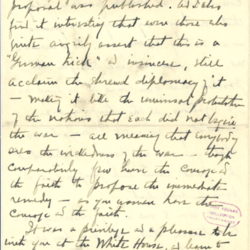 proposal" was published, as I also
find it interesting that even those who
quite angrily assert that this is a
"German kick" insincere, still
acclaim the shrewd diplomacy of it
— making it like the
of the nations that each did not begin
the war — all meaning that anybody
sees the wickedness of the war — though
comparatively few have the courage &
the faith to propose the immediate
remedy — as you women have the
courage & the faith.
It was a privilege & a pleasure to be
with you at the White House, & I learn to